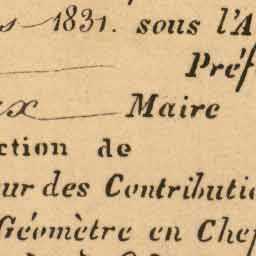 1831. sous l'A
Préf
ex Maire
ction de
eur des Contributi
Géomètre en Chef